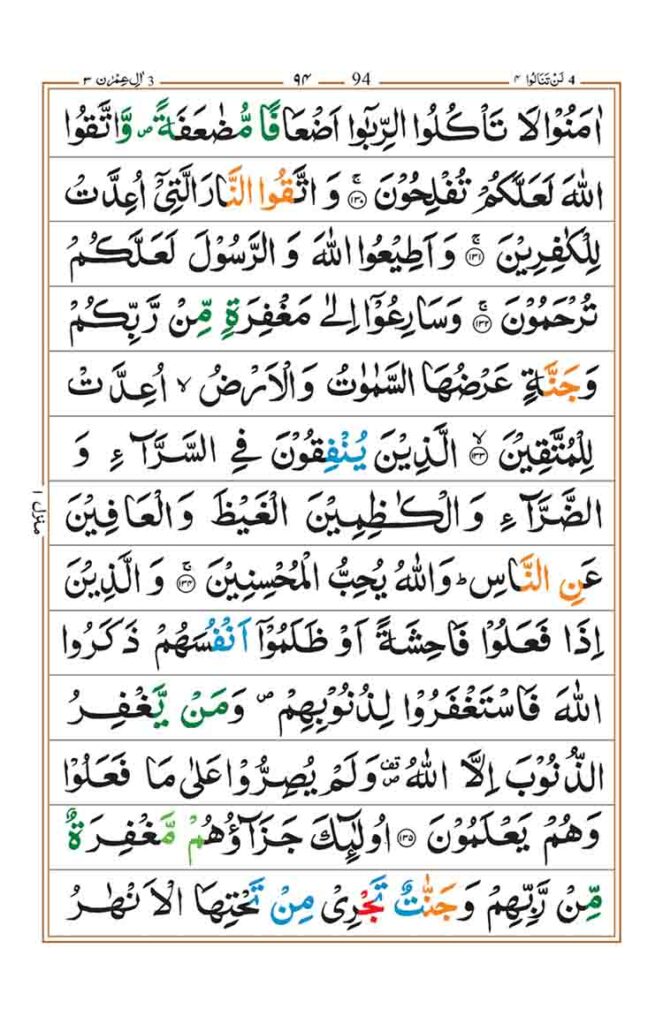 4 لَنْ تَنَالُوا ٤ — 94 — ۹۴ — 3 اٰلِ عِمْرٰن ۳
اٰمَنُوْا لَا تَاْكُلُوا الرِّبٰٓوا اَضْعَافًا مُّضٰعَفَةً ص وَّاتَّقُوا
اللّٰهَ لَعَلَّكُمْ تُفْلِحُوْنَ ۚ ﴿۱۳۰﴾ وَ اتَّقُوا النَّارَ الَّتِيْٓ اُعِدَّتْ
لِلْكٰفِرِيْنَ ۚ ﴿۱۳۱﴾ وَ اَطِيْعُوا اللّٰهَ وَ الرَّسُوْلَ لَعَلَّكُمْ
تُرْحَمُوْنَ ۚ ﴿۱۳۲﴾ وَ سَارِعُوْٓا اِلٰى مَغْفِرَةٍ مِّنْ رَّبِّكُمْ
وَ جَنَّةٍ عَرْضُهَا السَّمٰوٰتُ وَ الْاَرْضُ ۙ اُعِدَّتْ
لِلْمُتَّقِيْنَ ۙ ﴿۱۳۳﴾ الَّذِيْنَ يُنْفِقُوْنَ فِي السَّرَّآءِ وَ
الضَّرَّآءِ وَ الْكٰظِمِيْنَ الْغَيْظَ وَ الْعَافِيْنَ
عَنِ النَّاسِ ؕ وَ اللّٰهُ يُحِبُّ الْمُحْسِنِيْنَ ۚ ﴿۱۳۴﴾ وَ الَّذِيْنَ
اِذَا فَعَلُوْا فَاحِشَةً اَوْ ظَلَمُوْٓا اَنْفُسَهُمْ ذَكَرُوا
اللّٰهَ فَاسْتَغْفَرُوْا لِذُنُوْبِهِمْ ص وَ مَنْ يَّغْفِرُ
الذُّنُوْبَ اِلَّا اللّٰهُ قف ص وَ لَمْ يُصِرُّوْا عَلٰى مَا فَعَلُوْا
وَ هُمْ يَعْلَمُوْنَ ﴿۱۳۵﴾ اُولٰٓئِكَ جَزَآؤُهُمْ مَّغْفِرَةٌ
مِّنْ رَّبِّهِمْ وَ جَنّٰتٌ تَجْرِيْ مِنْ تَحْتِهَا الْاَنْهٰرُ
منزل ۱